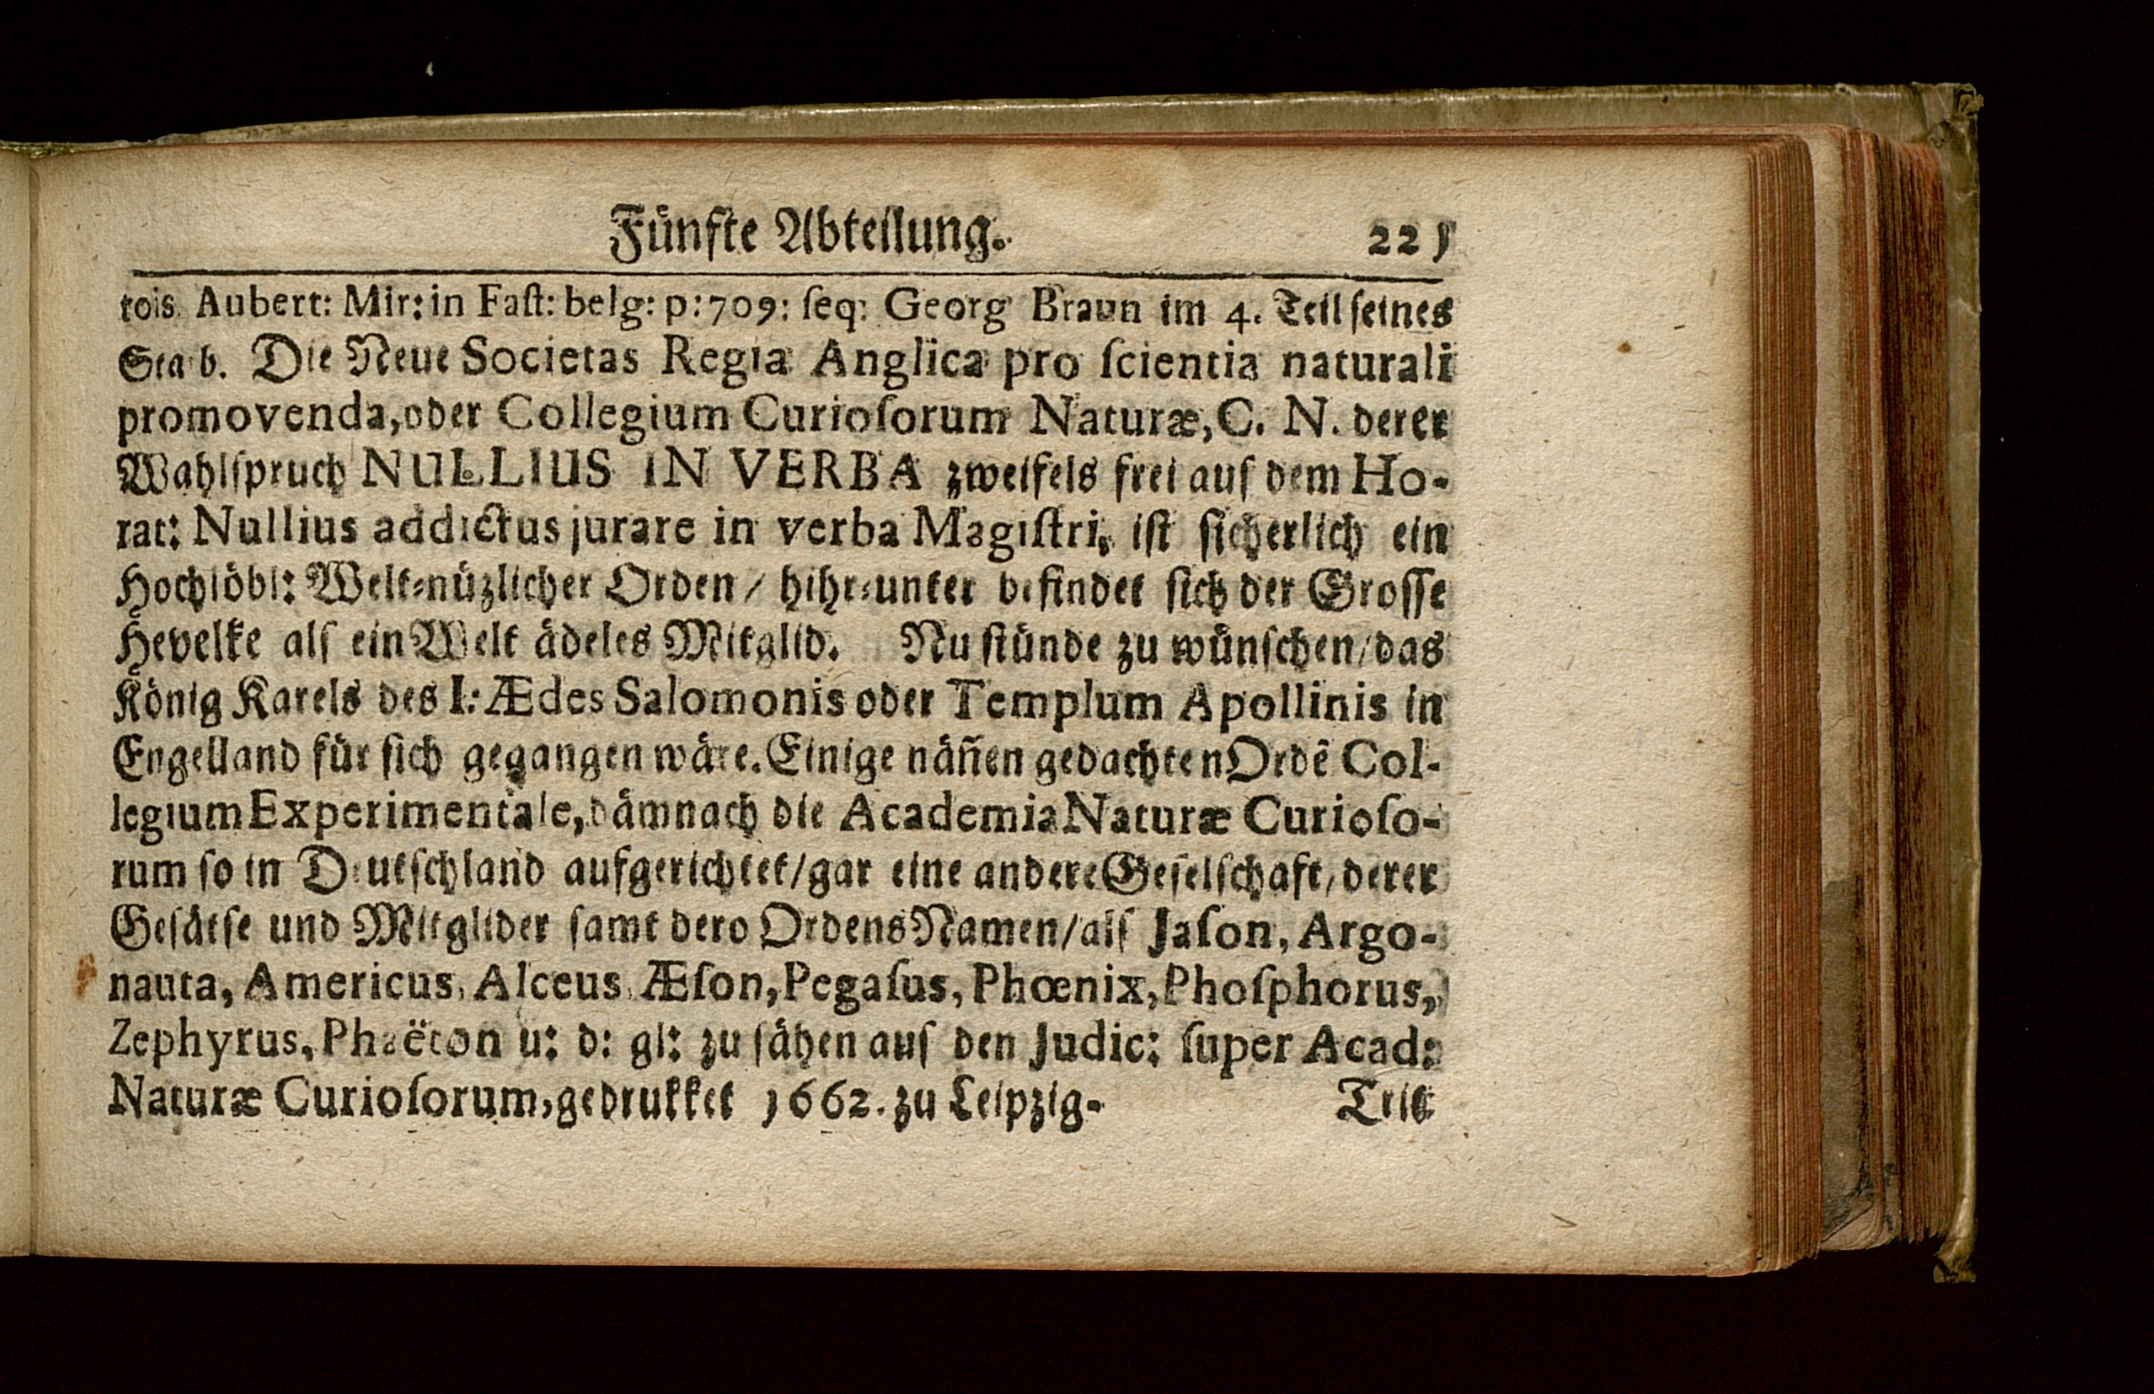 Fünfte Abteilung. 225
tois. Aubert: Mir: in Faſt: belg: p: 709: ſeq: Georg Braun im 4. Teil ſeines
Stab. Die Neue Societas Regia Anglica pro ſcientia naturali
promovenda, oder Collegium Curioſorum Naturæ, C. N. derer
Wahlſpruch NULLIUS IN VERBA zweifels frei auſ dem Ho-
rat: Nullius addictus jurare in verba Magiſtri, iſt ſicherlich ein
Hochlöbl: Welt-nüzlicher Orden / hihr-unter befindet ſich der Groſſe
Hevelke alſ ein Welt ädeles Mitglid. Nu ſtünde zu wünſchen / das
König Karels des I: Ædes Salomonis oder Templum Apollinis in
Engelland für ſich gegangen wäre. Einige näñen gedachten Ordẽ Col-
legium Experimentale, dämnach die Academia Naturæ Curioſo-
rum ſo in Deutſchland aufgerichtet / gar eine andere Geſelſchaft, derer
Geſätſe und Mitglider ſamt dero Ordens Namen / alſ Jaſon, Argo-
nauta, Americus, Alceus, Æſon, Pegaſus, Phœnix, Phoſphorus,
Zephyrus, Phaëton u: d: gl: zu ſähen auſ den Judic: ſuper Acad:
Naturæ Curioſorum, gedrukket 1662. zu Leipzig. Teil